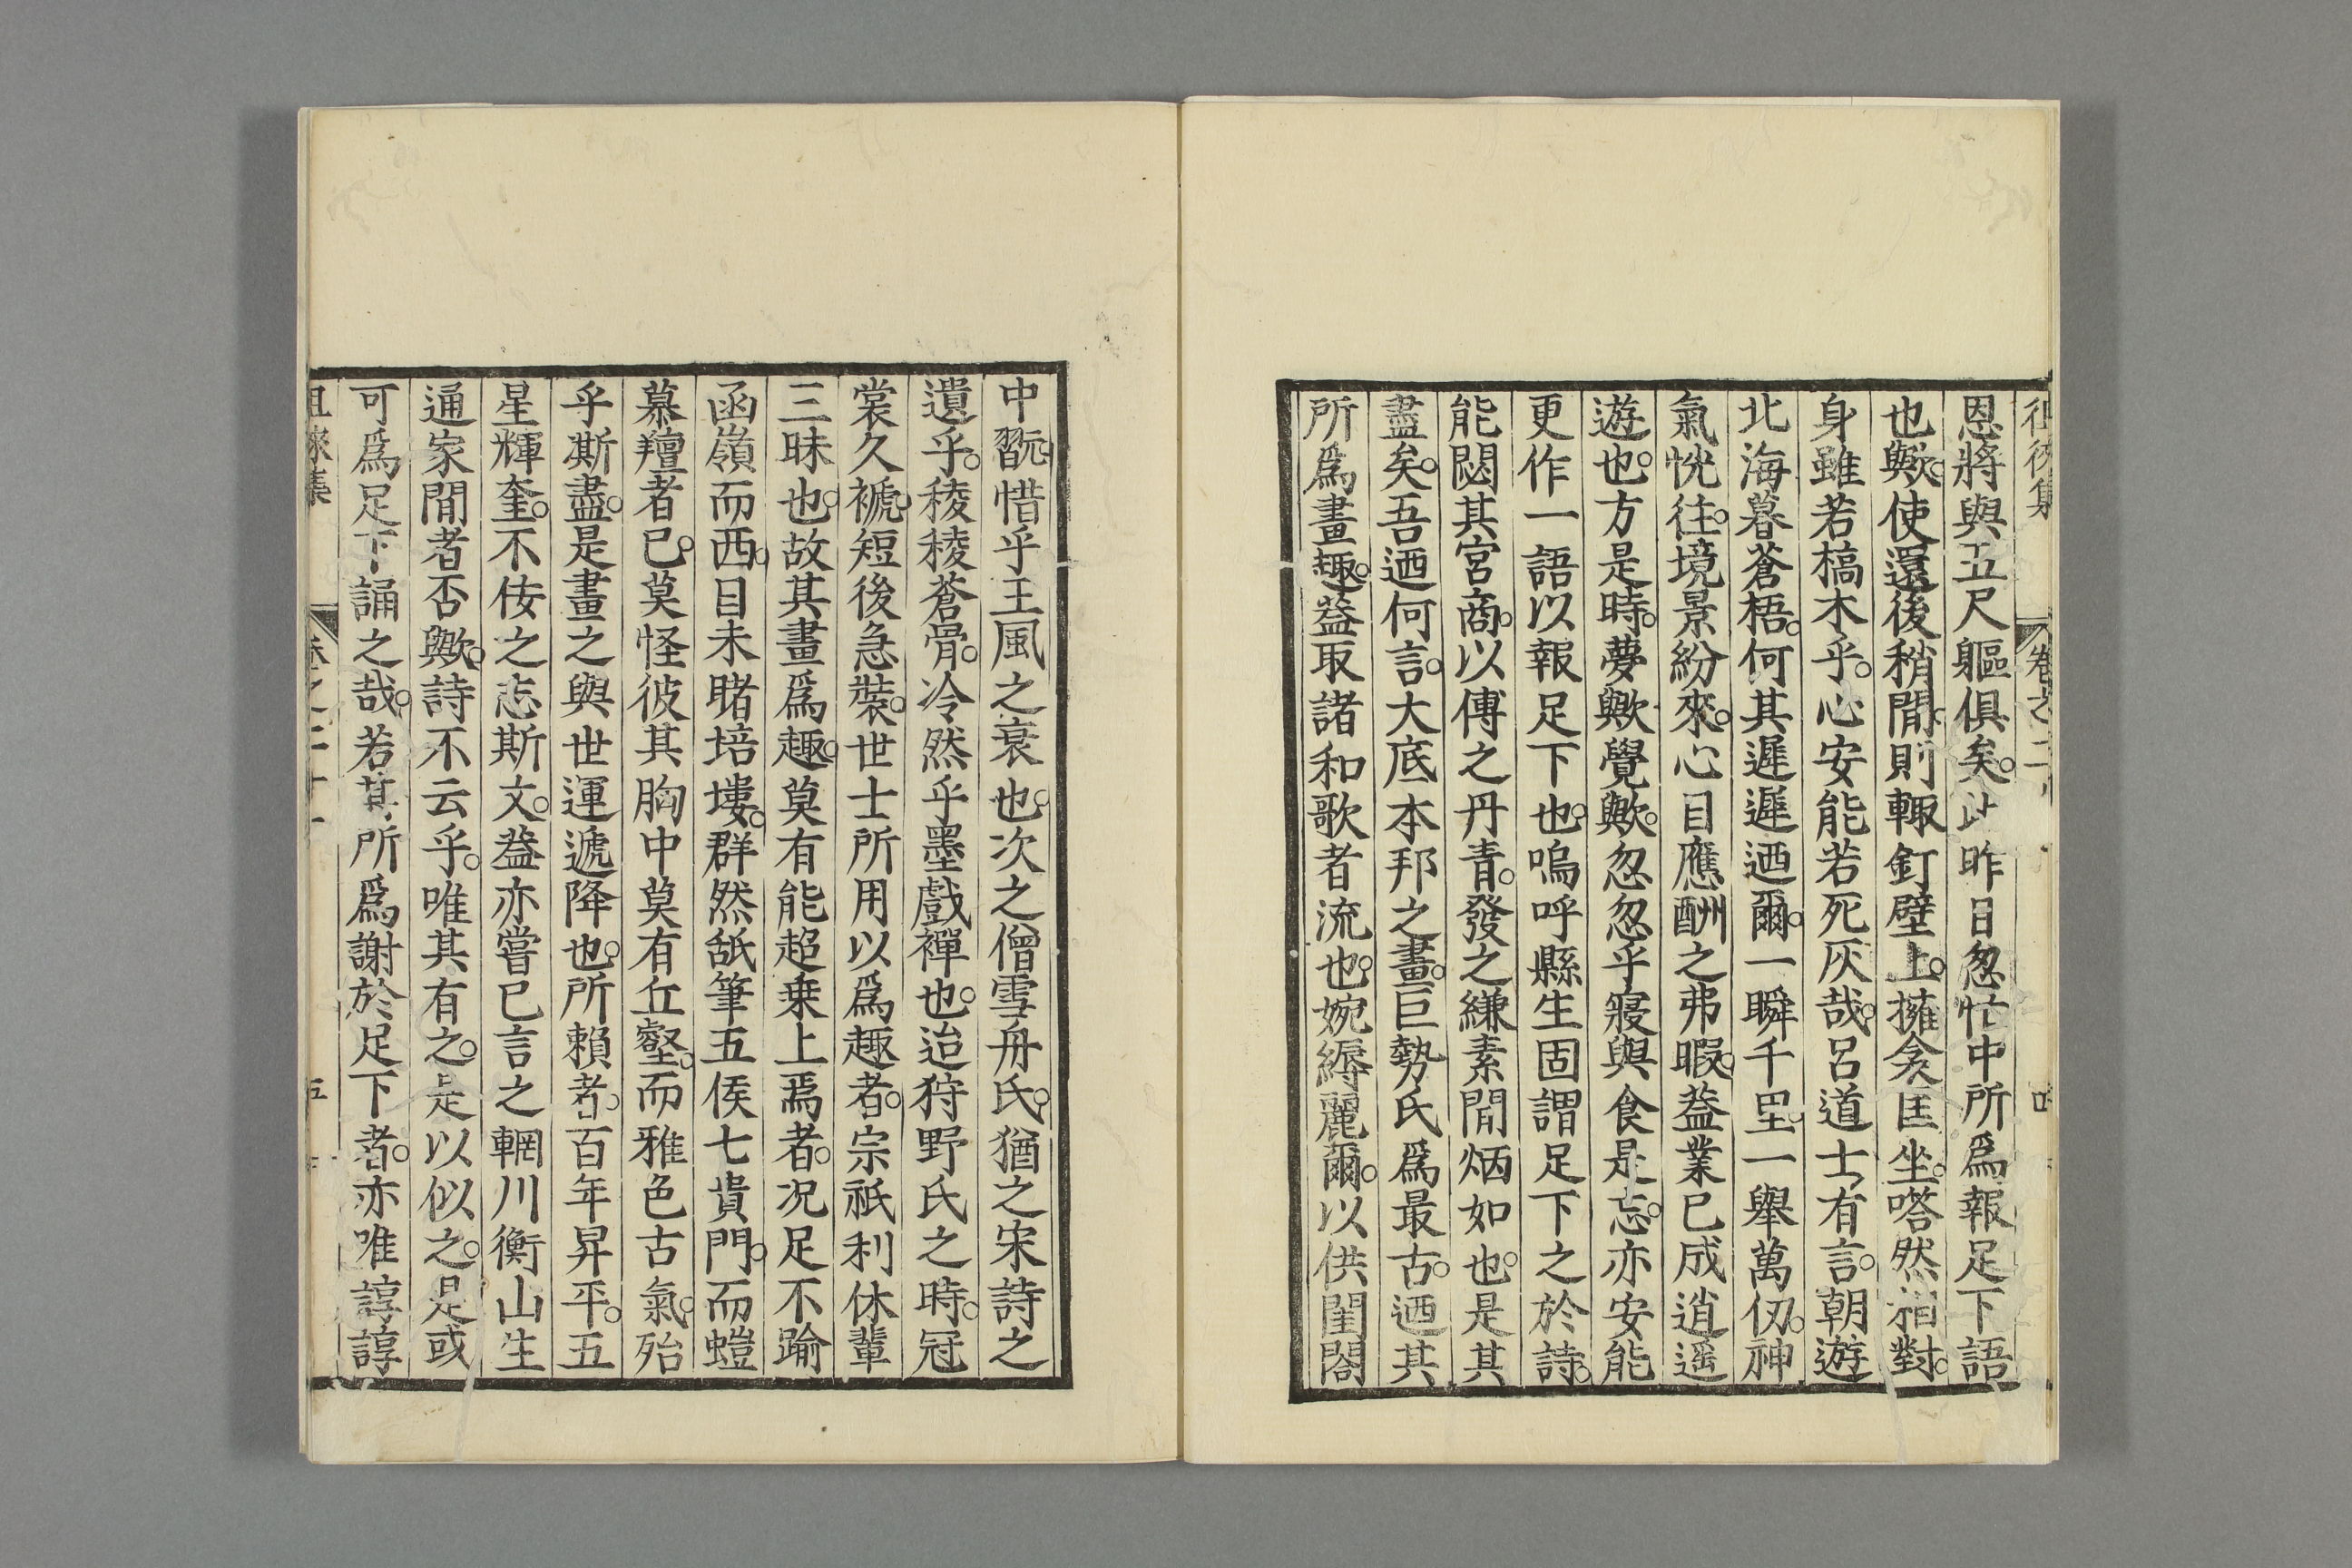 恩將與五尺軀俱矣。此昨日忽忙中所爲報足下語
也歟。使還後稍間。則輙釘壁上。擁衾匡坐。嗒然相對。
身雖若槁木乎。心安能若死灰哉。呂道士有言。朝遊
北海暮蒼梧。何其遲遲迺爾。一瞬千里。一舉萬仭。神
氣恍往。境景紛來。心目應酬之弗暇。葢業已成逍遥
遊也。方是時。夢歟覺歟。忽忽乎寢與食是忘。亦安能
更作一語以報足下也。嗚呼縣生固謂足下之於詩。
能閟其宮商。以傳之丹青。發之縑素間炳如也。是其
盡矣。吾迺何言。大底本邦之畫。巨勢氏爲最古。迺其
所爲畫趣。葢取諸和歌者流也。婉縟麗爾。以供閨閤
中翫。惜乎王風之衰也。次之僧雪舟氏。猶之宋詩之
遺乎。稜稜蒼骨。冷然乎墨戲禪也。迨狩野氏之時。冠
裳久褫。短後急裝。世士所用以爲趣者。宗祇利休輩
三昧也。故其畫爲趣。莫有能超乗上焉者。况足不踰
函嶺而西。目未睹培塿。群然舐筆五侯七貴門。而螘
慕羶者已。莫怪彼其胸中莫有丘壑。而雅色古氣。殆
乎澌盡。是畫之與世運遞降也。所賴者。百年昇平。五
星輝奎。不侫之志斯文。葢亦嘗已言之輞川衡山生
通家間者否歟。詩不云乎。唯其有之。是以似之。是或
可爲足下誦之哉。若其所爲謝於足下者。亦唯諄諄